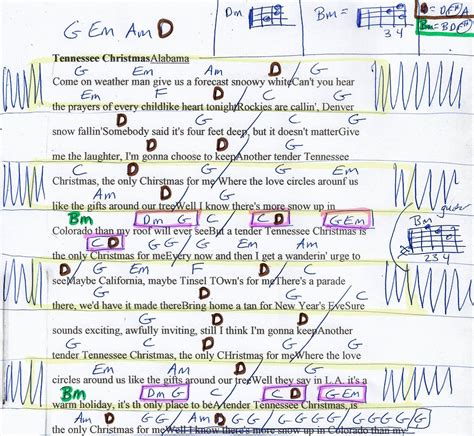 G Em Am D
Dm
Bm =
3 4
D = DF#A
Bm = BDF#
Tennessee ChristmasAlabama
G Em Am D G
Come on weather man give us a forecast snoowy whiteCan't you hear
Em F D C
the prayers of every childlike heart tonightRockies are callin', Denver
D G C
snow fallin'Somebody said it's four feet deep, but it doesn't matterGive
D G
me the laughter, I'm gonna choose to keepAnother tender Tennessee
C D G Em
Christmas, the only Chirstmas for meWhere the love circles arounf us
Am D G C
like the gifts around our treeWell I know there's more snow up in
Bm Dm G C D G Em
Colorado than my roof will ever seeBut a tender Tennessee Christmas is
C D G G G C G
the only Christmas for meEvery now and then I get a wanderin' urge to
D G Em F D C
seeMaybe California, maybe Tinsel TOwn's for meThere's a parade
D G C
there, we'd have it made thereBring home a tan for New Year's EveSure
D G
sounds exciting, awfully inviting, still I think I'm gonna keepAnother
C D G
tender Tennessee Christmas, the only CHristmas for meWhere the love
Em Am D G C
circles around us like the gifts around our treeWell they say in L.A. it's a
Bm Dm G C D G Em
warm holiday, it's th only place to beA tender Tennessee Christmas, is
Am D
the only Christmas for meWell I know there's more snow up in Colorado than my
Bm
2 3 4